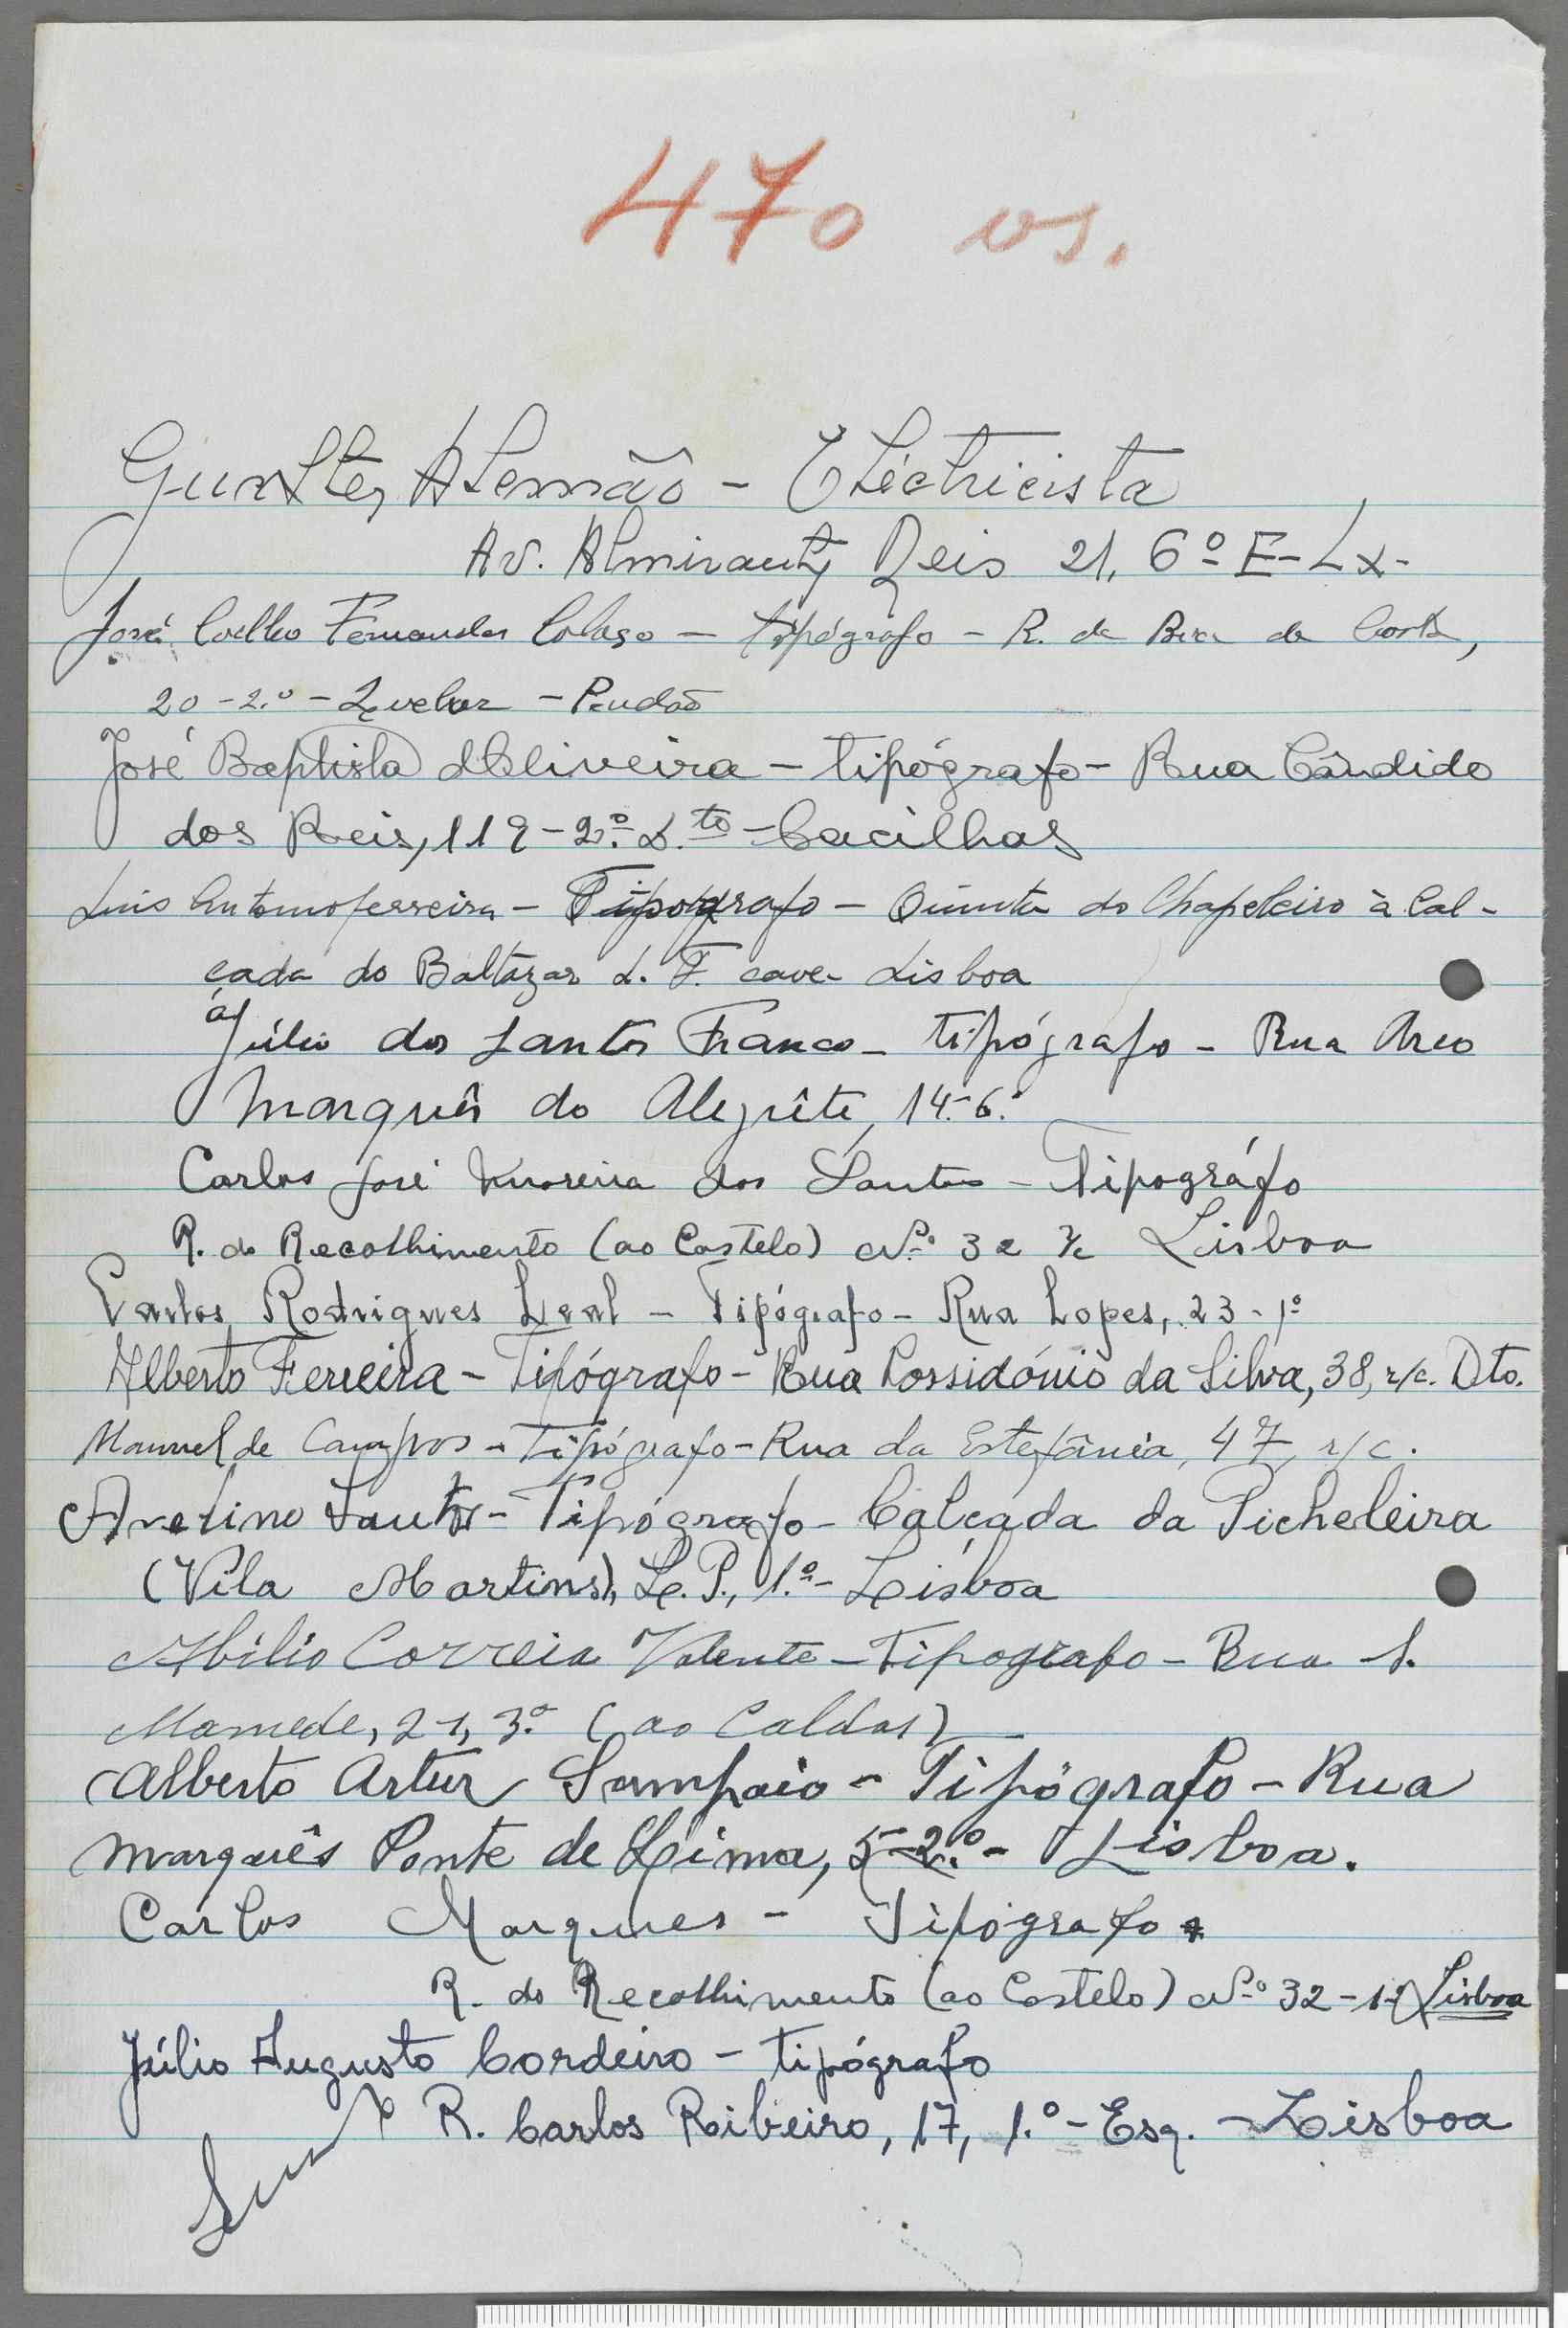 470 vs.
Alemão - Eléctricista
Av. Almirante Reis 21, 6º E - Lx -
José Coelho Fernandes Colaço - tipógrafo - R. da da Costa,
20 - 2.º - Queluz - Pendão
José Baptista d'Oliveira - tipógrafo - Rua Cândido
dos Reis, 119 - 2.º D.to - Cacilhas
Luis Antonio ferreira - Tipografo - Quinta do Chapeleiro à Cal-
çada do Baltazar L. F. cave - Lisboa
Júlio dos Santos Franco - tipógrafo - Rua Arco
Marquês do Alegrête, 14 - 6.º
Carlos José Moreira dos Santos - Tipográfo
R. do Recolhimento (ao Castelo) Nº 32 r/c Lisboa
Carlos Rodrigues Leal - Tipógrafo - Rua Lopes, 23 - 1º
Alberto Ferreira - Tipógrafo - Rua Possidónio da Silva, 38, r/c. Dto.
Manuel de Campos - Tipógrafo - Rua da Estefânia, 47, r/c.
Avelino Santos - Tipógrafo - Calçada da Picheleira
(Vila Martins), L. P., 1.º - Lisboa
Abílio Correia Valente - Tipografo - Rua S.
Mamede, 21, 3.º (ao Caldas)
Alberto Artur Sampaio - Tipógrafo - Rua
Marquês Ponte de Lima, 5 - 2.º - Lisboa.
Carlos Marques - Tipógrafo
R. do Recolhimento (ao Castelo) Nº 32 - 1º Lisboa
Júlio Augusto Cordeiro - tipógrafo
R. Carlos Ribeiro, 17, 1.º - Esq. - Lisboa